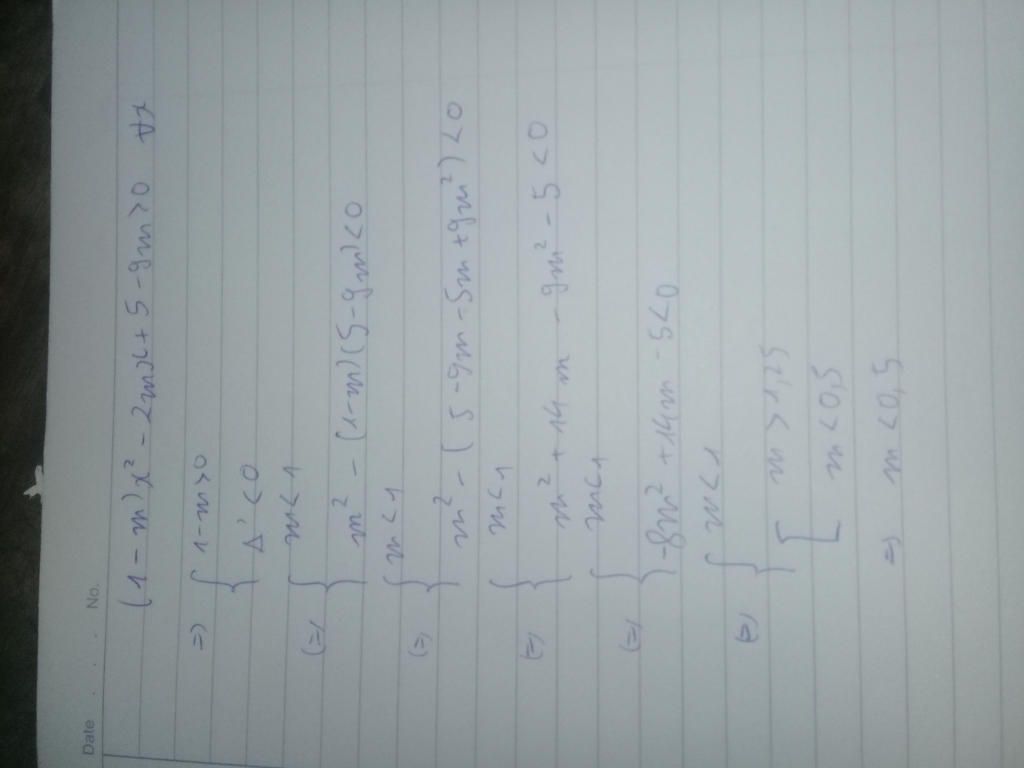 Date . . . No.
(1-m)x² - 2mx + 5 - 9m > 0 ∀x
=> { 1-m>0
Δ' < 0
(=) { m < 1
m² - (1-m)(5-9m) < 0
(=) { m < 1
m² - (5 - 9m - 5m + 9m²) < 0
(=) { m < 1
m² + 14m - 9m² - 5 < 0
(=) { m < 1
-8m² + 14m - 5 < 0
(=) { m < 1
[ m > 1,25
m < 0,5
=> m < 0,5